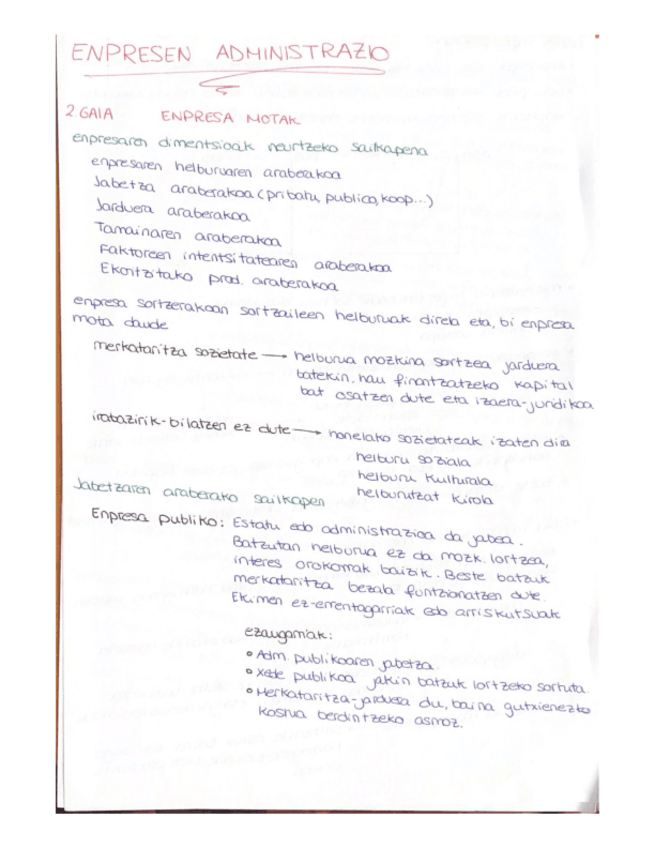 ENPRESEN ADMINISTRAZIO
2. GAIA ENPRESA MOTAK
enpresaren dimentsioak neurtzeko sailkapena
enpresaren helburuaren araberakoa
Jabetza araberakoa (pribatu, publico, koop...)
Jarduera araberakoa
Tamainaren araberakoa
Faktoreen intentsitatearen araberakoa
Ekoitzitako prod. araberakoa
enpresa sortzerakoan sortzaileen helburuak direla eta, bi enpresa
mota daude
merkataritza sozietate → helburua mozkina sortzea jarduera
batekin, hau finantzatzeko kapital
bat osatzen dute eta izaera-juridikoa
irabazirik-bilatzen ez dute → honelako sozietateak izaten dira
helburu soziala
helburu kulturala
helburutzat kirola
Jabetzaren araberako sailkapen
Enpresa publiko: Estatu edo administrazioa da jabea.
Batzutan helburua ez da mozk. lortzea,
interes orokorrak baizik. Beste batzuk
merkataritza bezala funtzionatzen dute.
Ekimen ez-errentagarriak edo arriskutsuak
ezaugarriak:
• Adm. publikoaren jabetza.
• Xede publikoa jakin batzuk lortzeko sortuta.
• Merkataritza-jarduera du, baina gutxienezko
kostua berdintzeko asmoz.